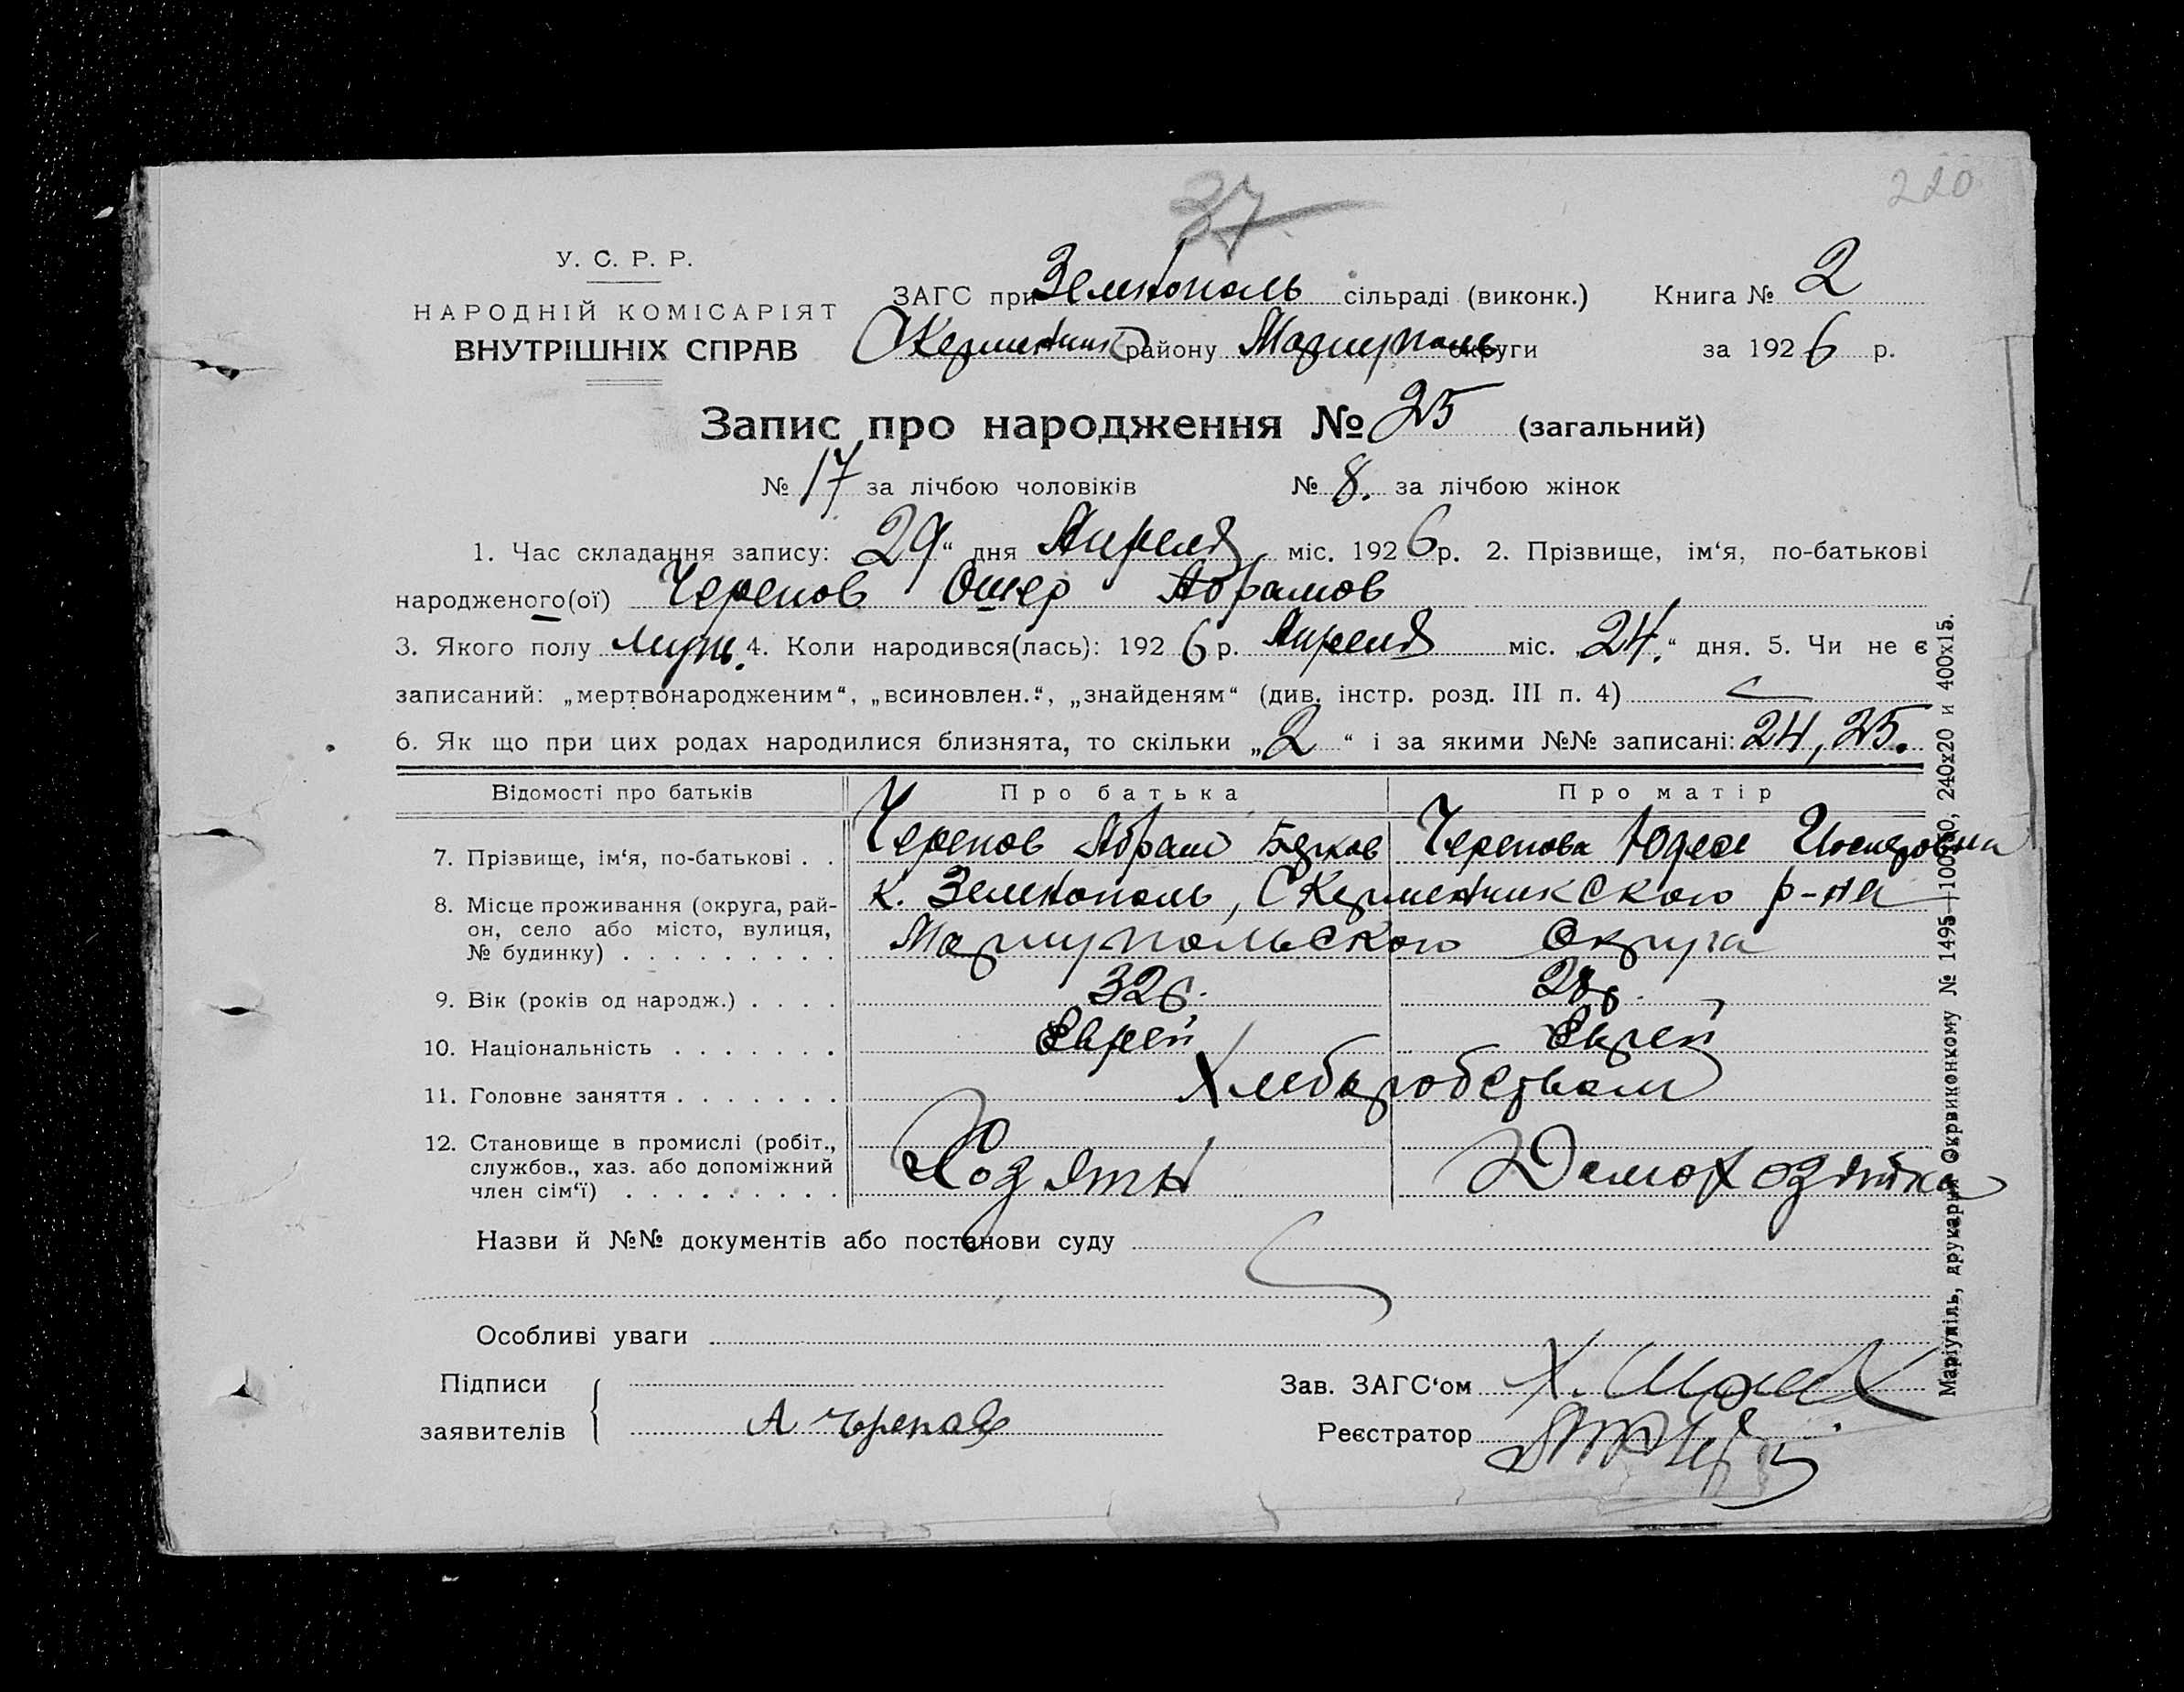 37
220
У. С. Р. Р.
НАРОДНІЙ КОМІСАРІЯТ
ВНУТРІШНІХ СПРАВ
ЗАГС при Зеленополь сільраді (виконк.) Книга № 2
району Мариуполь округи за 1926 р.
Запис про народження № 25 (загальний)
№ 17 за лічбою чоловіків № 8. за лічбою жінок
1. Час складання запису: 29“ дня Апреля міс. 1926 р. 2. Прізвище, ім‘я, по-батькові
народженого(ої) Черепов Ошер Абрамов
3. Якого полу муж. 4. Коли народився(лась): 1926 р. Апреля міс. „24.“ дня. 5. Чи не є
записаний: „мертвонародженим“, „всиновлен.“, „знайденям“ (див. інстр. розд. III п. 4)
6. Як що при цих родах народилися близнята, то скільки „2“ і за якими №№ записані: 24, 25.
Відомості про батьків Про батька Про матір
7. Прізвище, ім‘я, по-батькові . . Черепов Абрам Черепова
8. Місце проживання (округа, рай-
он, село або місто, вулиця,
№ будинку) . . . . . . . . .
к. Зеленополь, р-на
Мариупольского Округа
9. Вік (років од народж.) . . . . 32 28
10. Національність . . . . . . . Еврей Еврей
11. Головне заняття . . . . . . .
12. Становище в промислі (робіт.,
службов., хаз. або допоміжний
член сім‘ї) . . . . . . . . .
Назви й №№ документів або постанови суду
Особливі уваги
Підписи
заявителів
А Черепов
Зав. ЗАГС‘ом
Реєстратор
Маріупіль, друкарня Окрвиконкому № 1495—10000, 240х20 и 400х15.